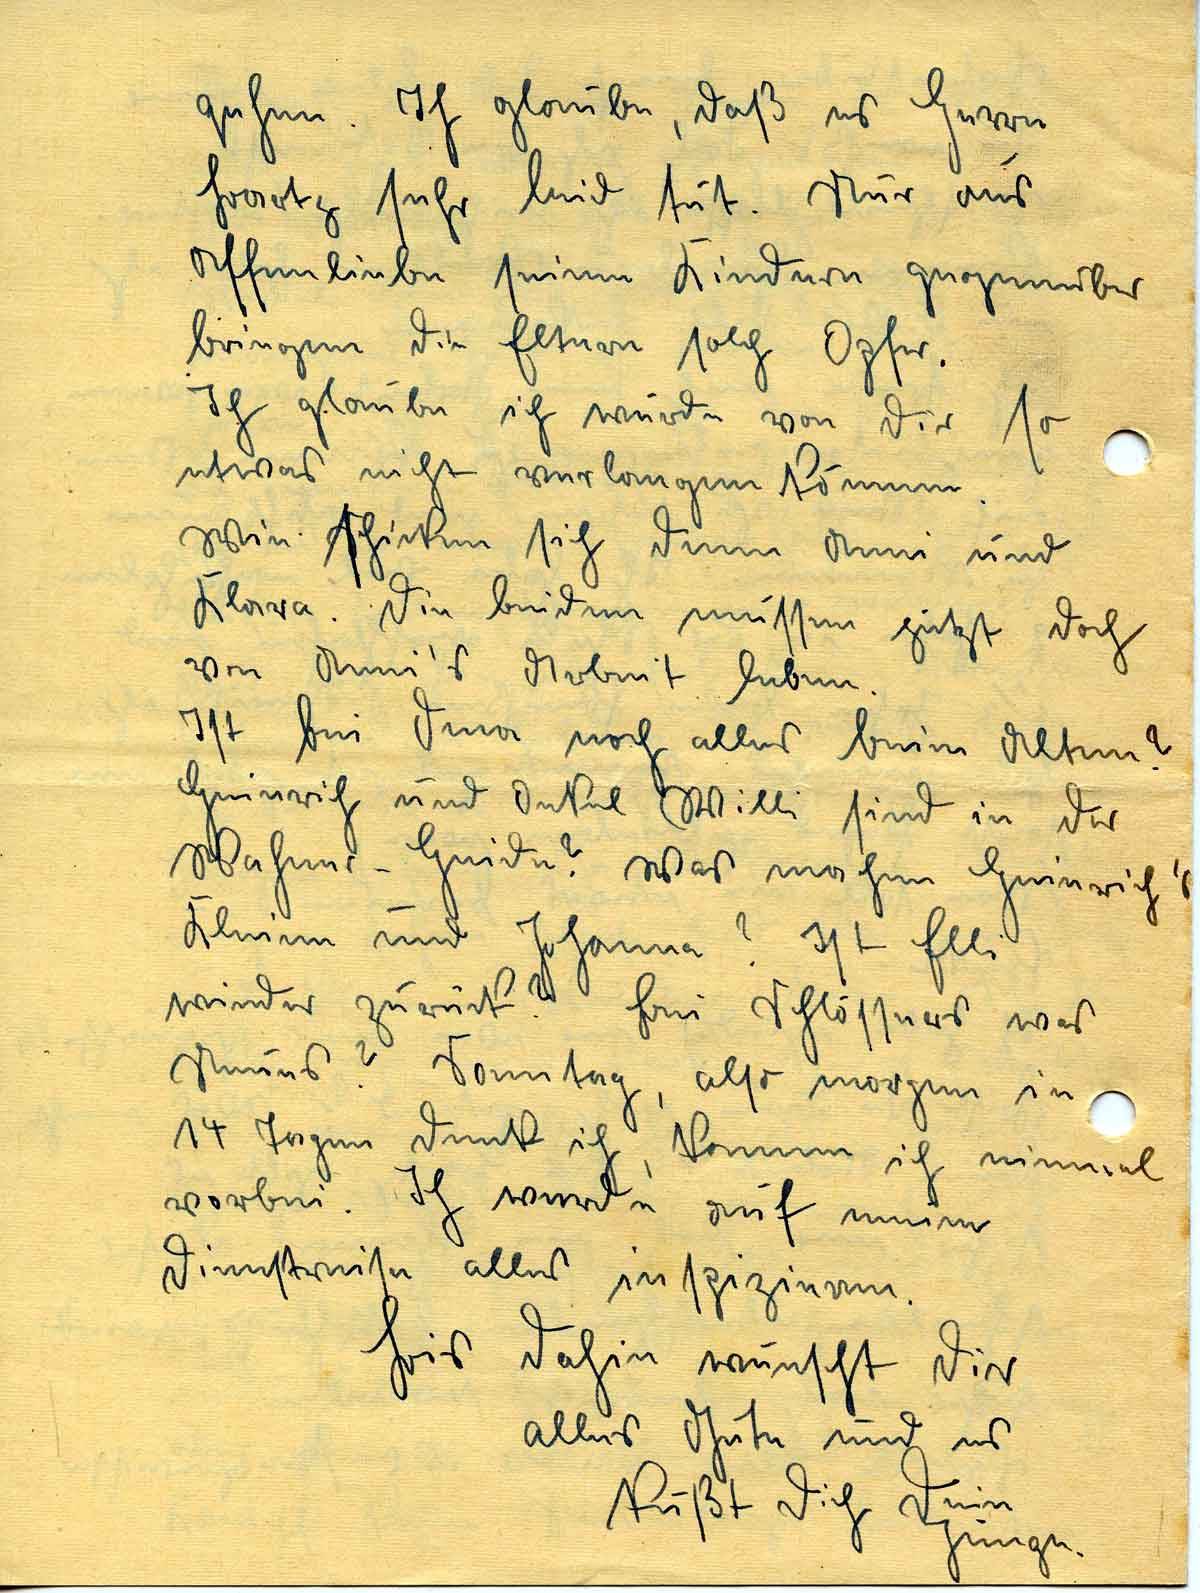 gehen. Ich glaube, daß es Herrn
Bartz sehr leid tut. Nur aus
Affenliebe seinen Kindern gegenüber
bringen die Eltern solch Opfer.
Ich glaube ich würde von Dir so
etwas nicht verlangen können.
Wie schicken sich denn Anni und
Klara. Die beiden müssen jetzt doch
von Anni's Arbeit leben.
Ist bei Oma noch alles beim Alten?
Heinrich und Onkel Willi sind in der
Wahner-Heide? Was machen Heinrich's
Kleinen und Johanna? Ist Elli
wieder zurück? Bei Schlössers was
Neues? Sonntag, also morgen in
14 Tagen denk ich, komme ich einmal
vorbei. Ich werde auf meine
Dienstreise alles inspizieren.
Bis dahin wünscht Dir
alles Gute und es
küßt Dich Dein
Junge.